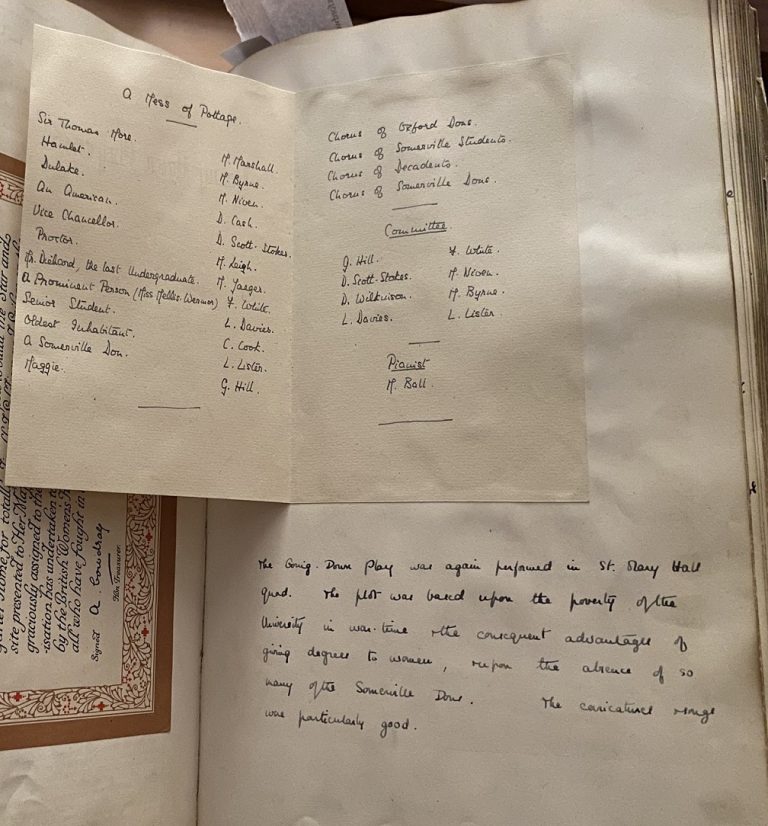 A Mess of Pottage.
Sir Thomas More. M. Marshall.
Hamlet. M. Byrne.
Dulake. M. Niven.
An American. D. Cash.
Vice Chancellor. D. Scott-Stokes.
Proctor. M. Leigh.
Mr. Diehard, the last Undergraduate. M. Jaeger.
A Prominent Person (Miss Mellis. Wermor) F. White.
Senior Student. L. Davies.
Oldest Inhabitant. C. Cook.
A Somerville Don. L. Lister.
Maggie. G. Hill.
Chorus of Oxford Dons.
Chorus of Somerville Students.
Chorus of Decadents.
Chorus of Somerville Dons.
Committee.
G. Hill. F. White.
D. Scott-Stokes. M. Niven.
D. Wilkinson. M. Byrne.
L. Davies. L. Lister.
Pianist
M. Ball.
The Going-Down Play was again performed in St. Mary Hall
quad. The plot was based upon the poverty of the
University in war-time & the consequent advantages of
giving degrees to women, & upon the absence of so
many of the Somerville Dons. The caricatures & songs
were particularly good.
Star and
home for totally
site presented to Her Maj
graciously assigned to the
isation has undertaken to
by the British Womens H
all who have fought in
Signed A. Cowdray
Hon Treasurer.